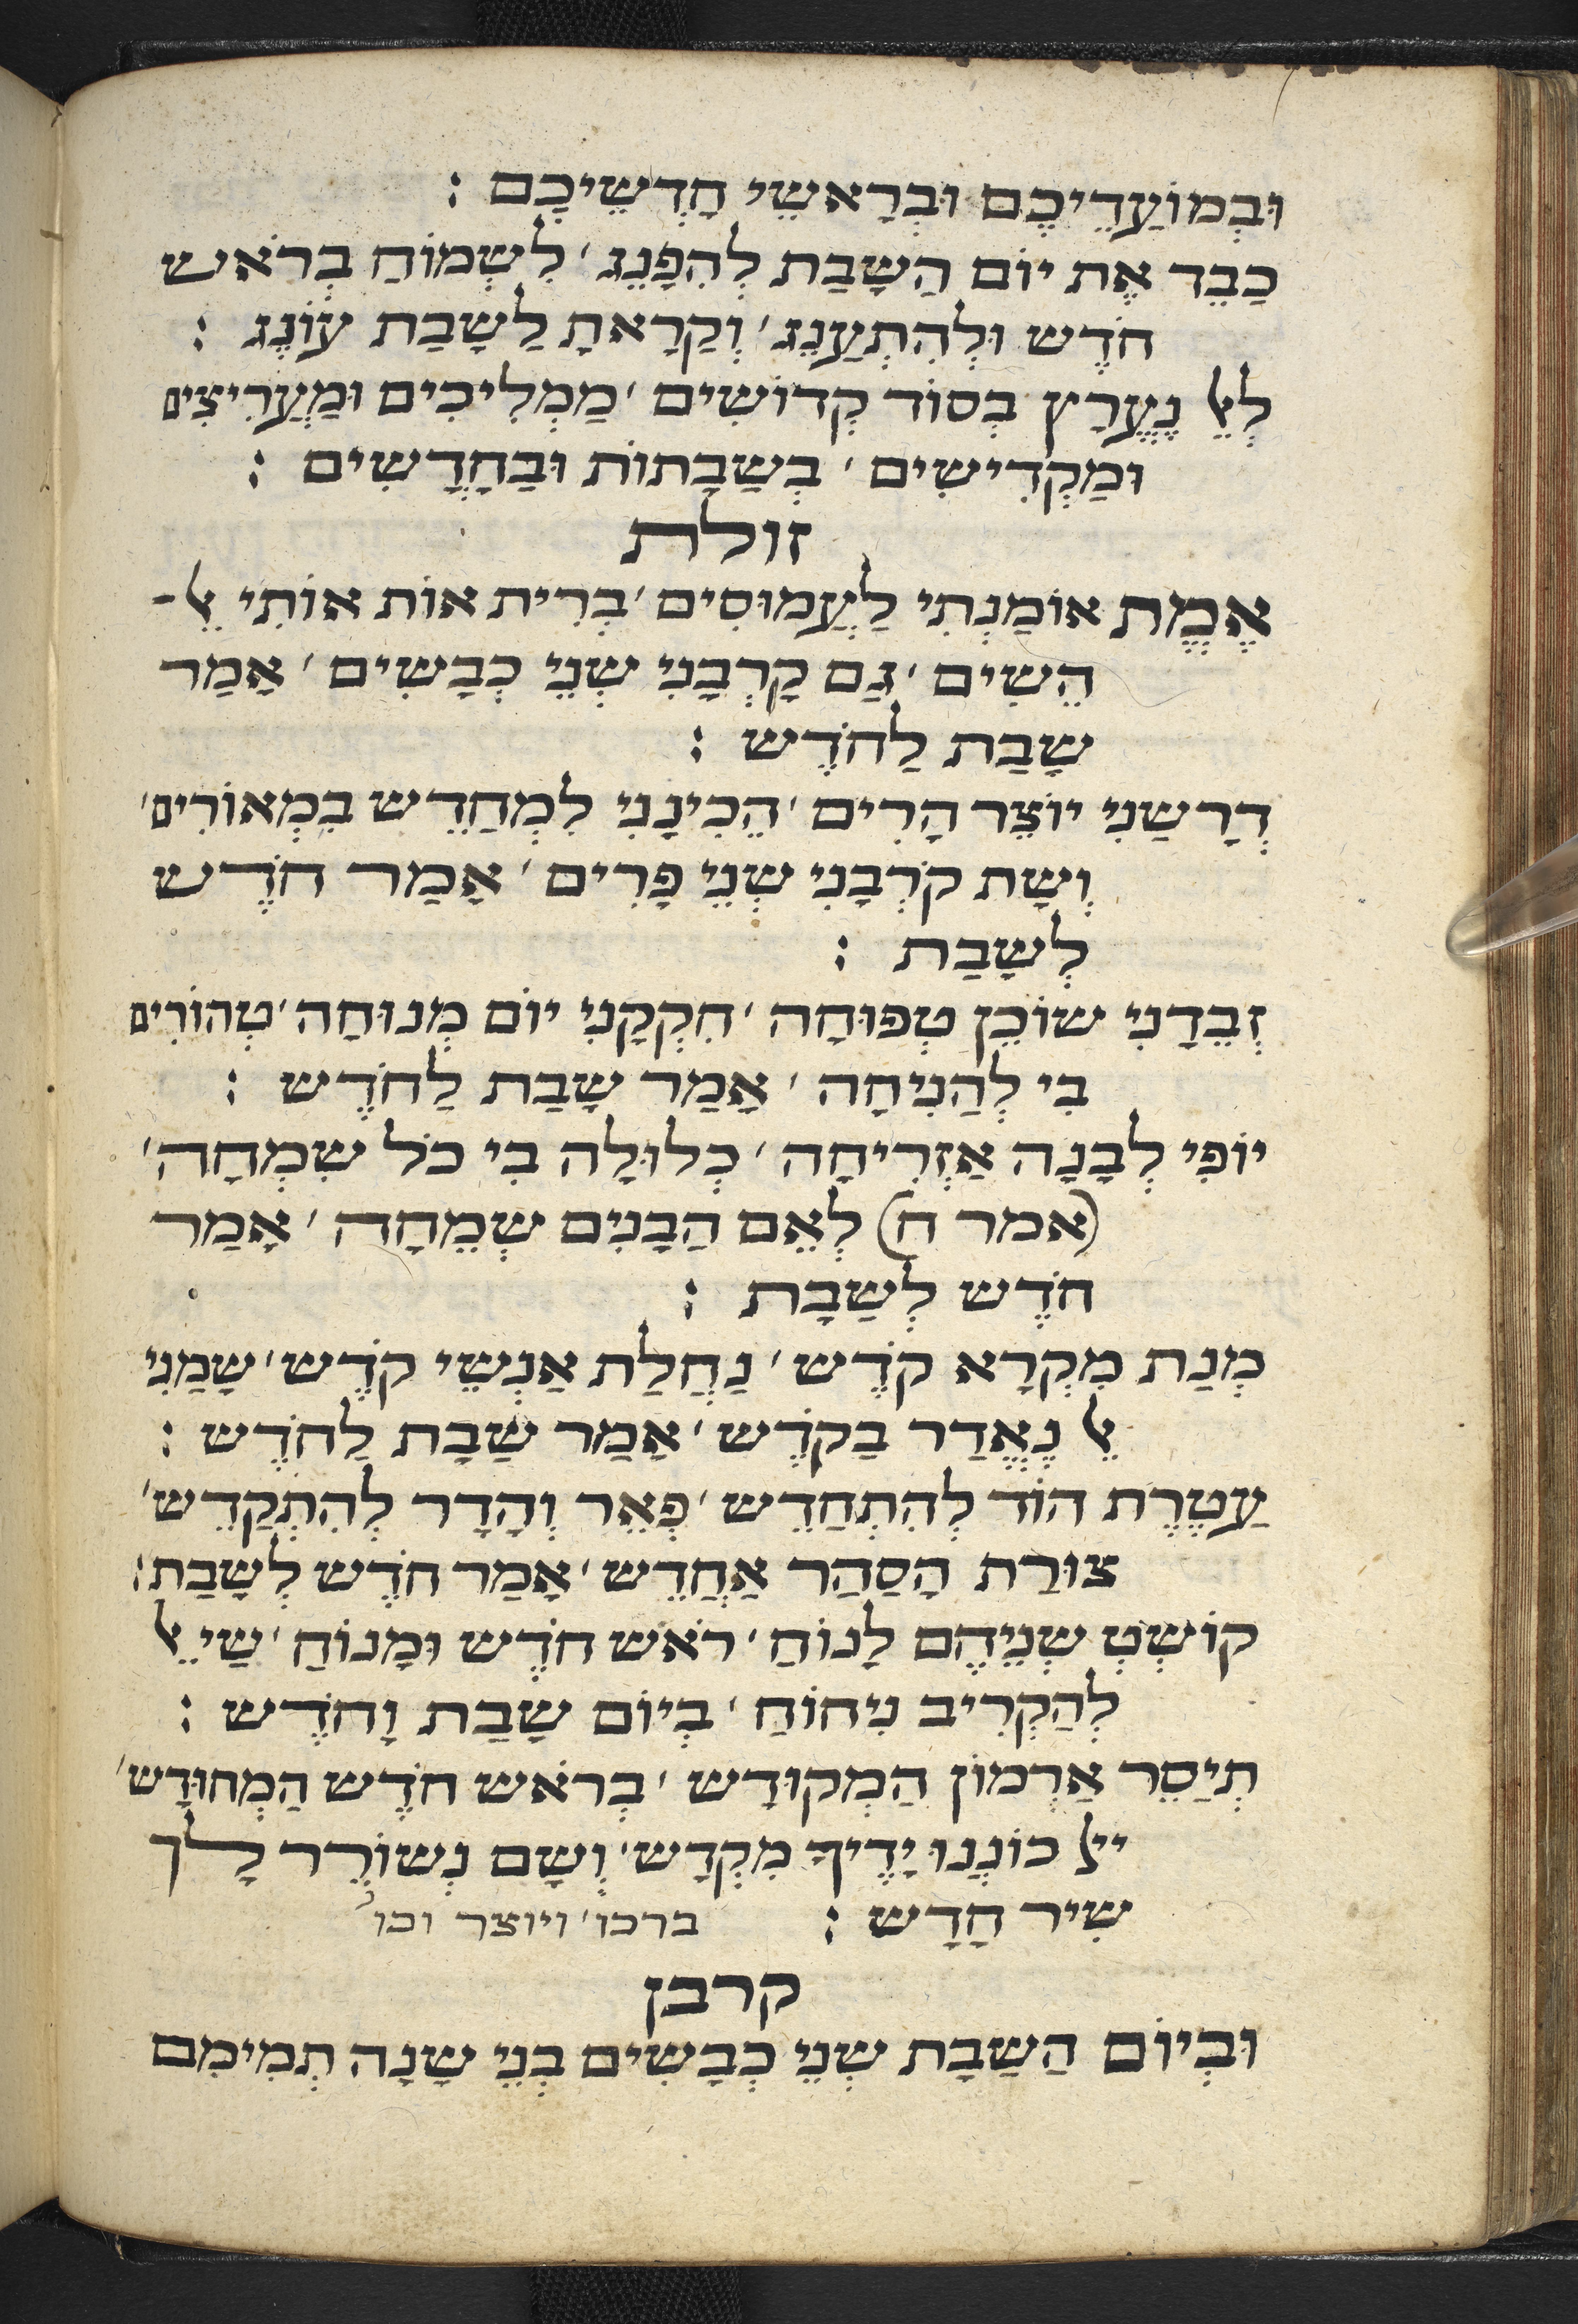 וּבְמוֹעֲדֵיכֶם וּבְרָאשֵׁי חָדְשֵׁיכֶם :
כַּבֵּד אֶת יוֹם הַשָּׁבַּת לְהִפָּנֵג׳ לִשְׂמוֹחַ בְּרֹאש
חֹדֶש וּלְהִתְעַנֵּג׳ וְקָרָאתָ לַשָּׁבַּת עוֹנֶג :
לְאֵל נֶעֱרָץ בְּסוֹד קְדוֹשִׁים׳ מַמְלִיכִים וּמַעֲרִיצִים
וּמַקְדִישִׁים׳ בְּשַׁבָּתוֹת וּבַחֳדָשִׁים :
זולת
אֱמֶת אוֹמַנְתִי לַעֲמוּסִים׳ בְּרִית אוֹת אוֹתִי אֵל־
הֵשִׂים׳ גַּם קָרְבָּנִי שְׁנֵי כְּבָשִׂים׳ אָמַר
שַׁבָּת לַחֹדֶש :
דְרָשַׁנִי יוֹצֵר הָרִים׳ הֱכִינָנִי לִמְחַדֵּש בִּמְאוֹרִים׳
וְשָׁת קֹרְבָּנִי שְׁנֵי פָּרִים׳ אָמַר חֹדֶש
לְשַׁבַּת :
זְבֵדַנִי שׁוֹכֵן טְפוּחָה׳ חִקְקָנִי יוֹם מְנוּחָה׳ טְהוֹרִים
בִּי לְהַנִיחָה׳ אָמַר שַׁבָּת לַחֹדֶש :
יוֹפִי לְבָנָה אַזְרִיחָה׳ כְּלוּלָה בִי כֹל שִׂמְחָה׳
(אמר ח) לְאֵם הַבָּנִים שְׂמֵחָה׳ אָמַר
חֹדֶש לְשַׁבָּת :
מְנַת מִקְרָא קֹדֶש׳ נַחֲלַת אַנְשֵׁי קֹדֶש׳ שָׂמַנִי
אֵל נֶאֱדַר בַּקֹּדֶש׳ אָמַר שַׁבָּת לַחֹדֶש :
עֲטֶרֶת הוֹד לְהִתְחַדֵּש׳ פְּאֵר וְהָדָר לְהִתְקַדֵּש׳
צוּרַת הַסַּהַר אֲחַדֵּש׳ אָמַר חֹדֶש לְשַׁבָּת :
קוֹשְׁטְ שְׁנֵיהֶם לָנוֹחַ׳ רֹאש חֹדֶש וּמָנוֹחַ׳ שַׁי אֵל
לְהַקְרִיב נִיחוֹחַ׳ בְּיוֹם שַׁבָּת וָחֹדֶש :
תְיַסֵּר אַרְמוֹן הַמְקוּדָש׳ בְּרֹאש חֹדֶש הַמְחוּדָּש׳
ייל כּוֹנְנוּ יָדֶיךָ מִקְדָּש׳ וְשָׁם נְשׁוֹרֵר לָךְ
שִׁיר חָדָש : ברכו׳ ויוצר וכו׳
קרבן
וּבְיוֹם הַשַּׁבָּת שְׁנֵי כְבָשִׂים בְּנֵי שָׁנָה תְמִימִם